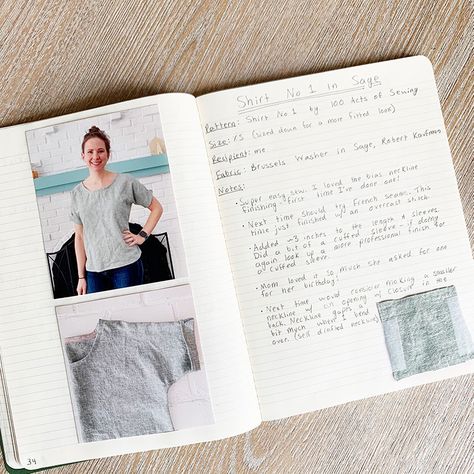 Shirt No 1 In Sage
Pattern: Shirt No 1 by 100 Acts of Sewing
Size: XS (sized down for a more fitted look)
Recipient: me
Fabric: Brussels Washer in Sage, Robert Kaufman
Notes:
• Super easy sew. I loved the bias neckline
finishing - first time I've done one!
• Next time should try French seams. This
time just finished w/ an overcast stitch.
• Added ~3 inches to the length & sleeves.
Did a bit of a cuffed sleeve - if doing
again look up a more professional finish for
a cuffed sleeve.
• Mom loved it so much she asked for one
for her birthday!
• Next time would consider making a smaller
neckline w/ an opening & closure in the
back. Neckline gapes a bit much when I bend
over. (self drafted neckline)
34